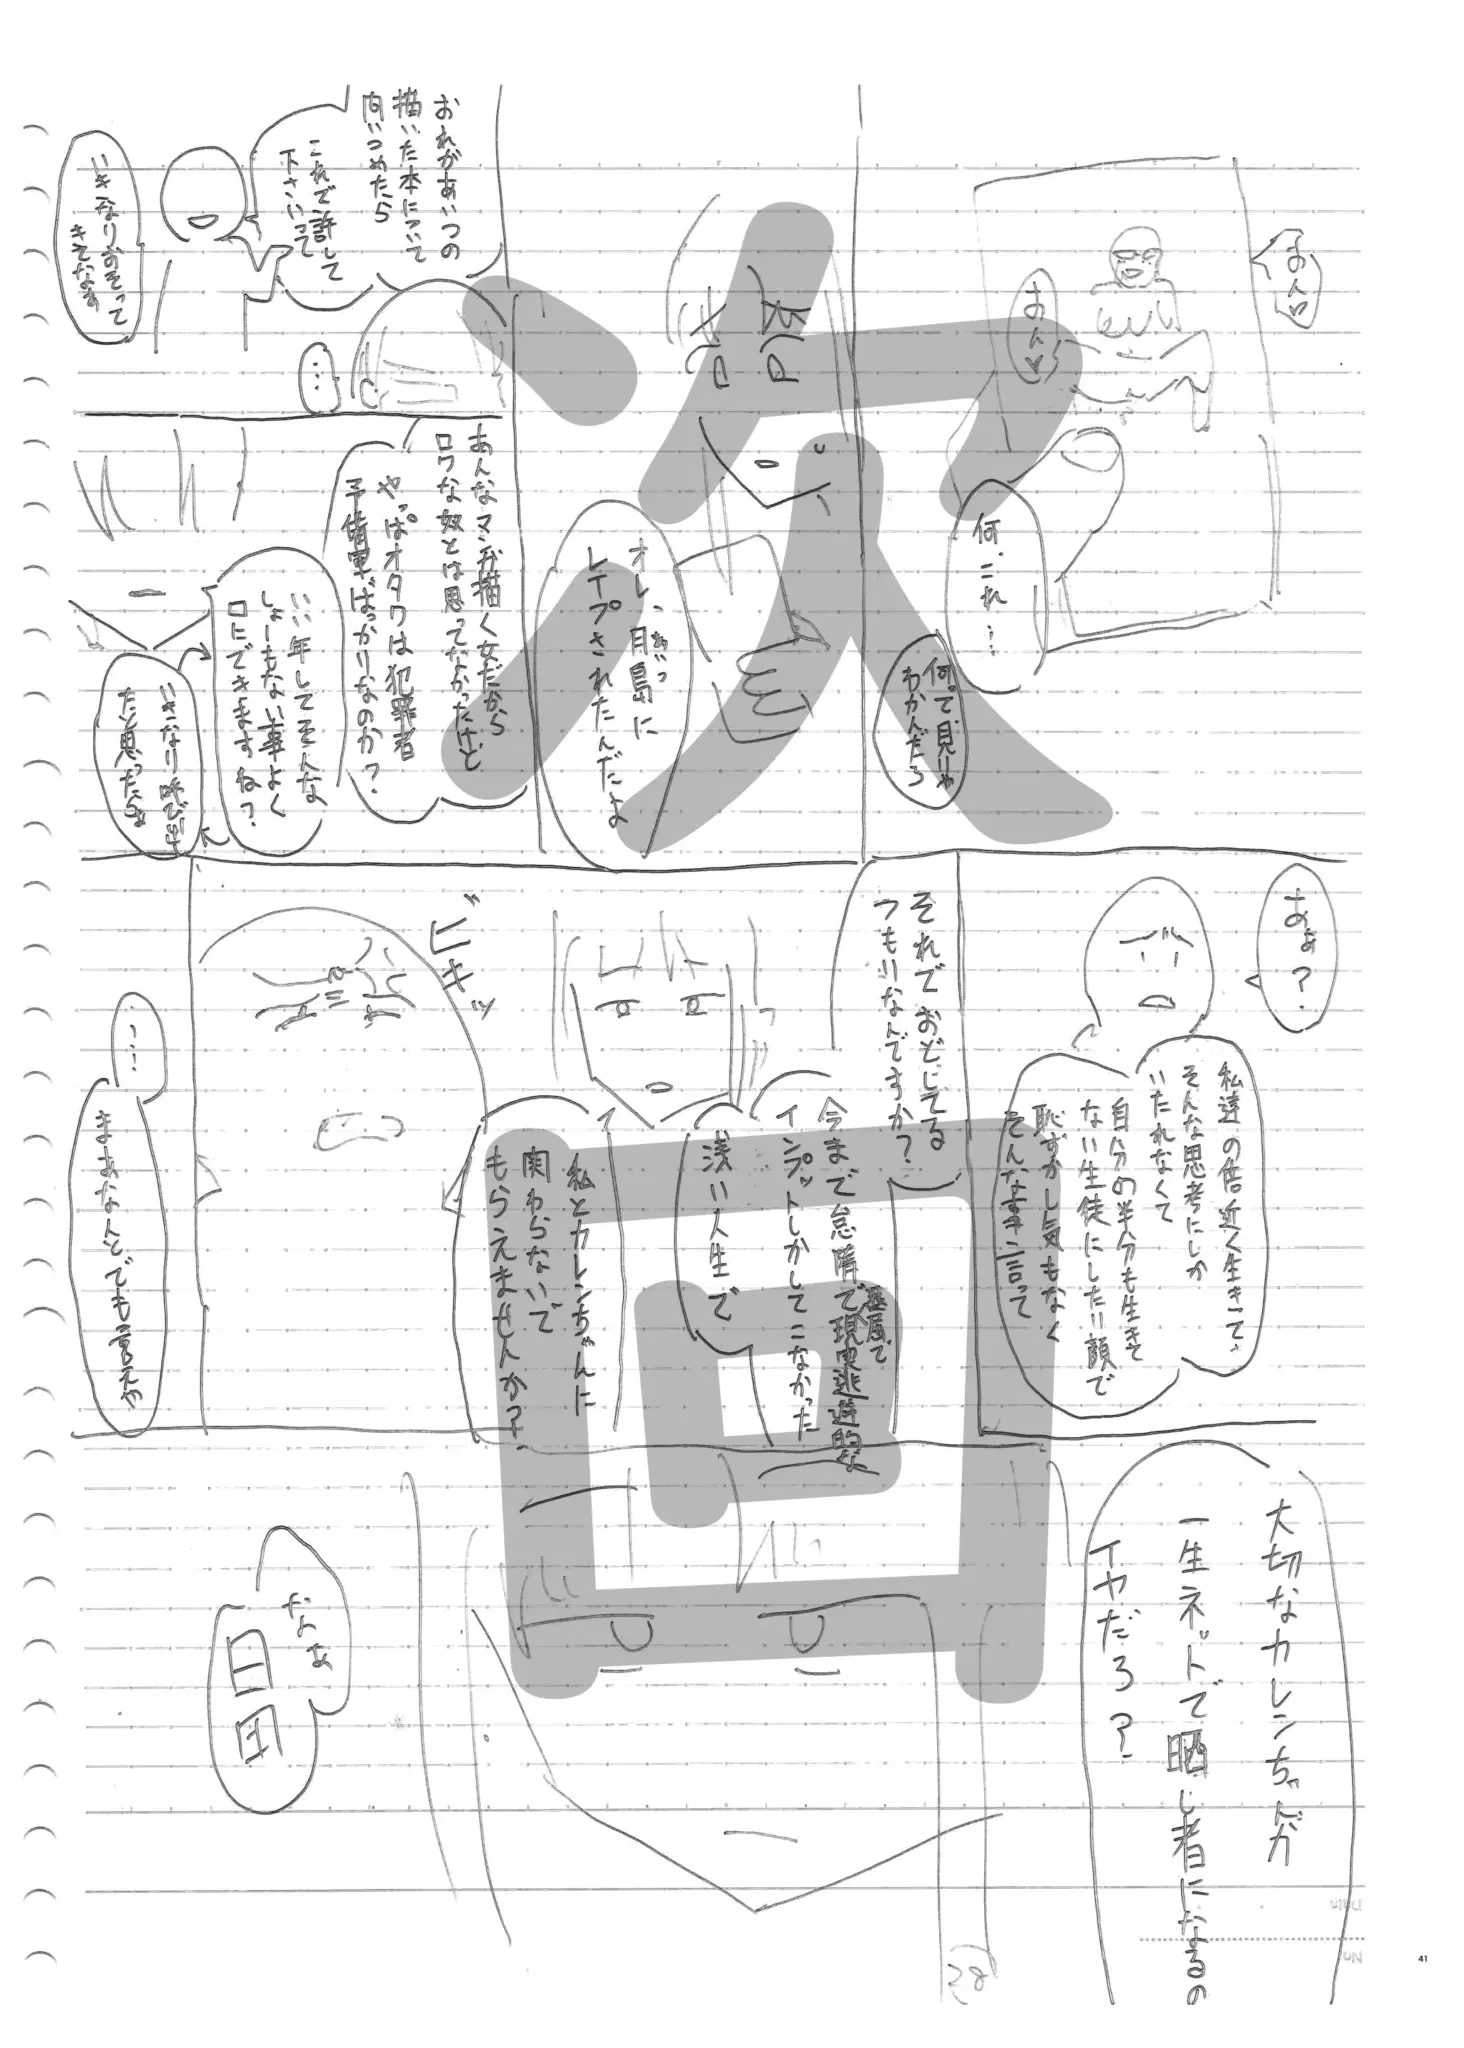 あんっ
あんっ
何、これ…
何って見りゃ
わかんだろ
オレ、月島に
レイプされたんだよ
おれがあいつの
描いた本について
問いつめたら
これで許して
下さいって
いきなりおそって
きてなぁ
…
あんなマンガ描く女だから
ロクな奴とは思ってなかったけど
やっぱオタクは犯罪者
予備軍ばっかりなのか?
いい年してそんな
しょーもない事よく
口にできますね?
いきなり呼び出し
たと思ったらさ
あぁ?
私達の倍近く生きて、
そんな思考にしか
いたれなくて
自分の半分も生きて
ない生徒にしたり顔で
恥ずかし気もなく
そんな事言って
それでおどしてる
つもりなんですか?
今まで怠惰で卑屈で現実逃避的な
インプットしかしてこなかった
浅い人生で
私とカレンちゃんに
関わらないで
もらえませんか?
ビキッ
…
まぁなんとでも言えや
大切なカレンちゃんが
一生ネットで晒し者になるの
イヤだろ?
なぁ
日田
次回
Date
No
41